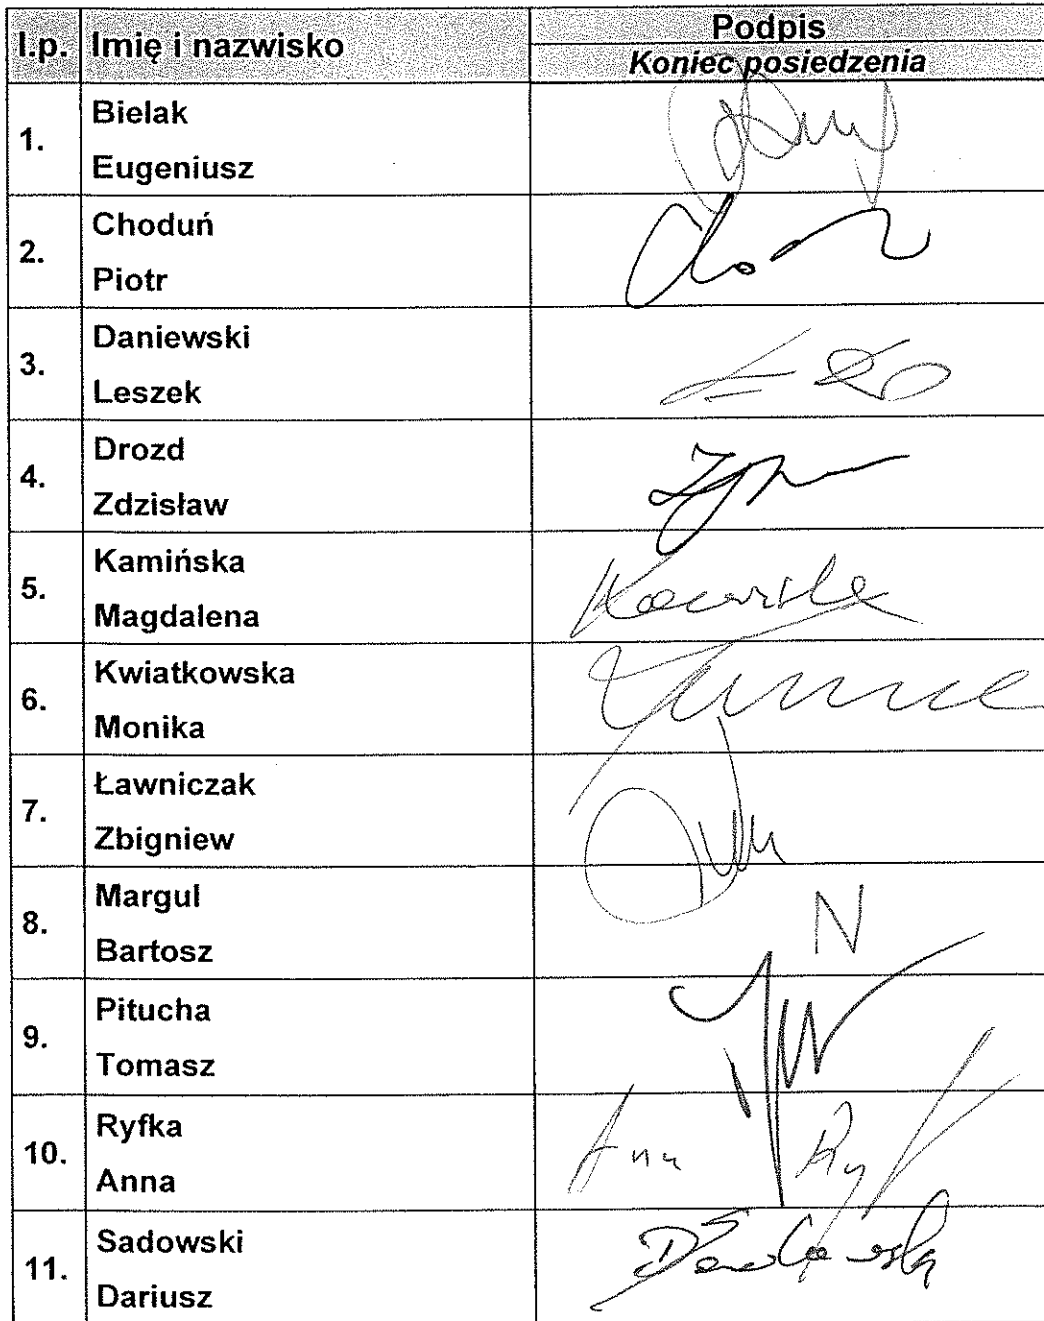 l.p. Imię i nazwisko Podpis
Koniec posiedzenia
1. Bielak
Eugeniusz
2. Choduń
Piotr
3. Daniewski
Leszek
4. Drozd
Zdzisław
5. Kamińska
Magdalena
6. Kwiatkowska
Monika
7. Ławniczak
Zbigniew
8. Margul
Bartosz
N
9. Pitucha
Tomasz
10. Ryfka
Anna
11. Sadowski
Dariusz